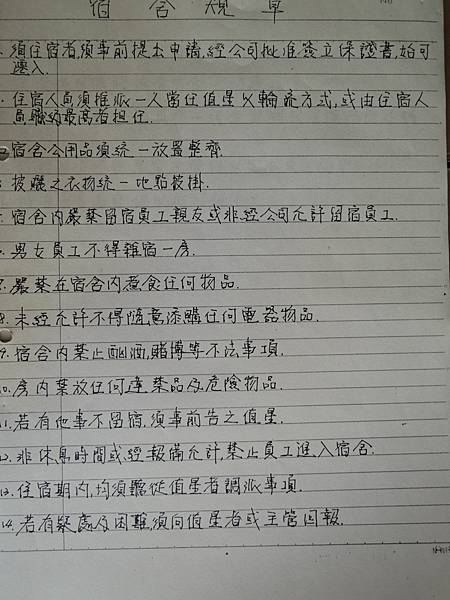 宿舍規章
1. 須住宿者,須事前提出申請,經公司批准簽立保證書,始可
遷入.
2. 住宿人員須推派一人當任值星以輪流方式,或由住宿人
員職級最高者担任.
3. 宿舍公用品須統一放置整齊.
4. 披曬之衣物統一地點披掛.
5. 宿舍內嚴禁留宿員工親友或非經公司允許留宿員工.
6. 男女員工不得雜宿一房.
7. 嚴禁在宿舍內煮食任何物品.
8. 未經允許不得隨意添購任何電器物品.
9. 宿舍內禁止酗酒,賭博等不法事項.
10. 房內禁放任何違禁品及危險物品.
11. 若有他事不留宿,須事前告之值星.
12. 非休息時間或經報備允許,禁止員工進入宿舍.
13. 住宿期內,均須聽從值星者調派事項.
14. 若有疑處及困難,須向值星者或主管回報.